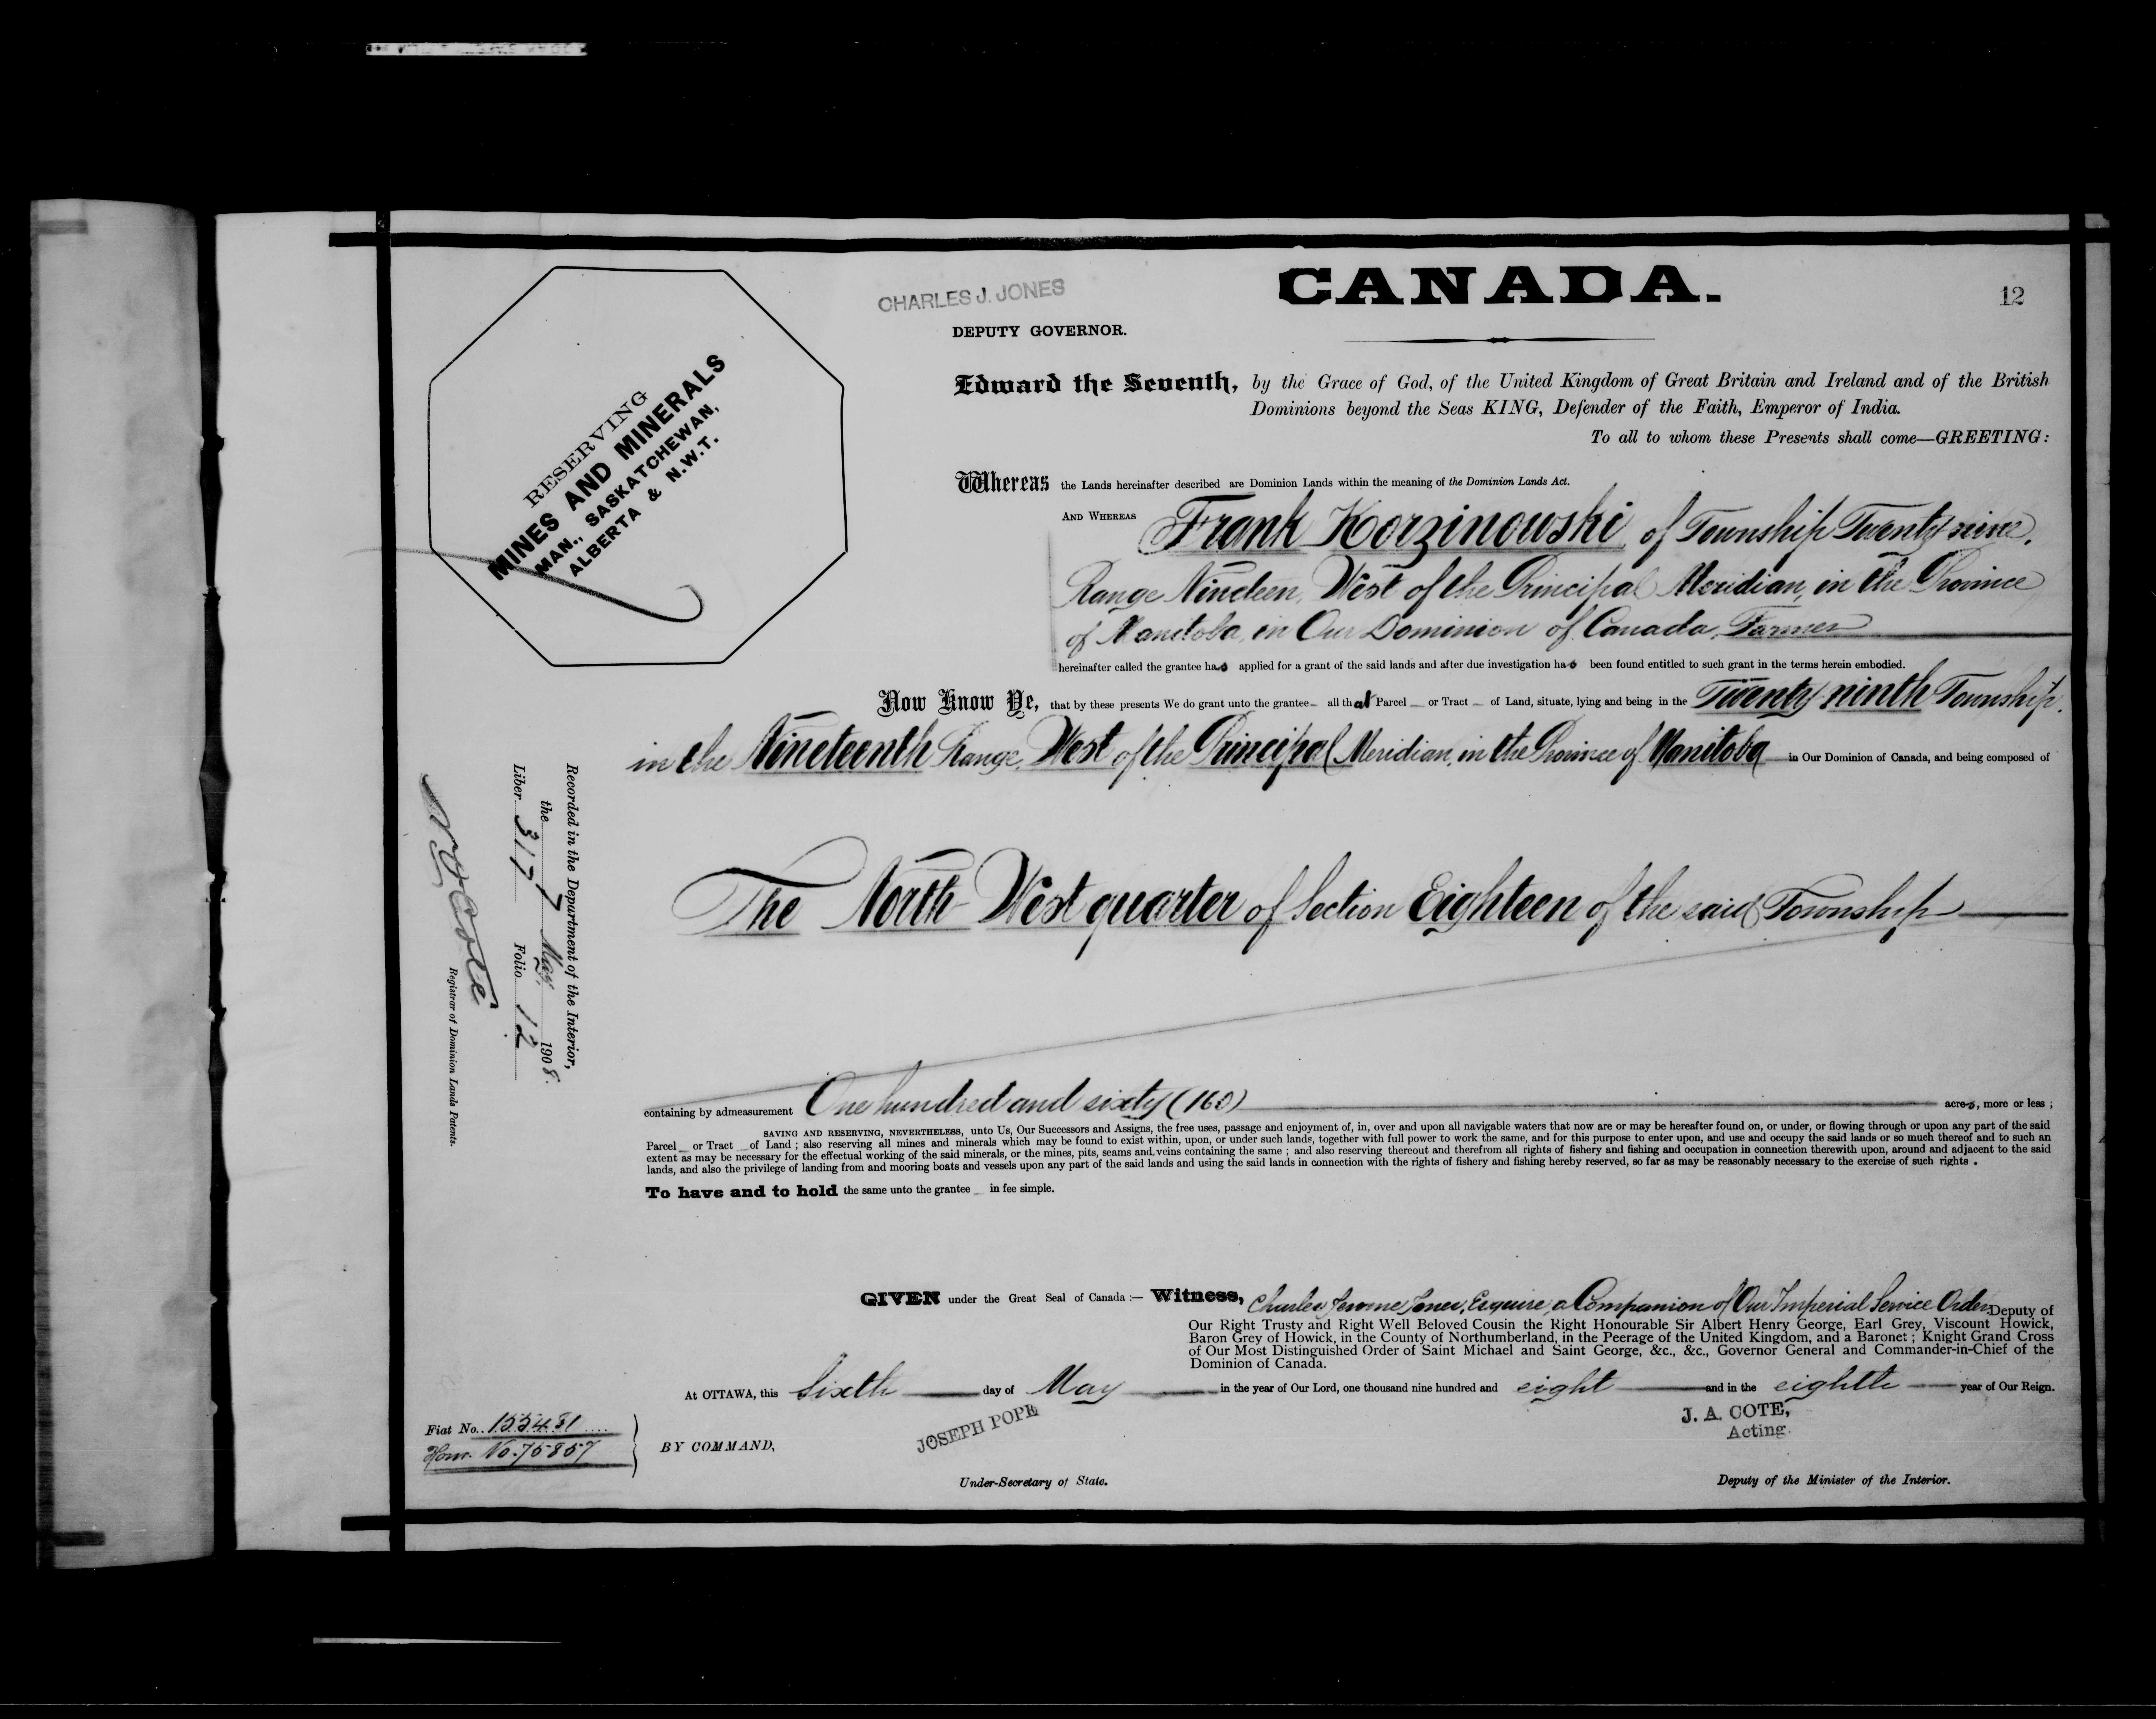 CHARLES J. JONES
CANADA.
12
DEPUTY GOVERNOR.
RESERVING
MINES AND MINERALS
MAN., SASKATCHEWAN,
ALBERTA & N.W.T.
Edward the Seventh, by the Grace of God, of the United Kingdom of Great Britain and Ireland and of the British
Dominions beyond the Seas KING, Defender of the Faith, Emperor of India.
To all to whom these Presents shall come—GREETING:
Whereas the Lands hereinafter described are Dominion Lands within the meaning of the Dominion Lands Act.
AND WHEREAS Frank Korzinowski of Township Twenty-nine,
Range Nineteen, West of the Principal Meridian, in the Province
of Manitoba, in Our Dominion of Canada, Farmer
hereinafter called the grantee has applied for a grant of the said lands and after due investigation has been found entitled to such grant in the terms herein embodied.
Now Know Ye, that by these presents We do grant unto the grantee all that Parcel or Tract of Land, situate, lying and being in the Twenty-ninth Township,
in the Nineteenth Range, West of the Principal Meridian, in the Province of Manitoba in Our Dominion of Canada, and being composed of
The North West quarter of Section Eighteen of the said Township
Recorded in the Department of the Interior,
the 7 May, 1908.
Liber 317 Folio 12
Registrar of Dominion Lands Patents.
containing by admeasurement One hundred and sixty (160) acres, more or less ;
SAVING AND RESERVING, NEVERTHELESS, unto Us, Our Successors and Assigns, the free uses, passage and enjoyment of, in, over and upon all navigable waters that now are or may be hereafter found on, or under, or flowing through or upon any part of the said
Parcel or Tract of Land ; also reserving all mines and minerals which may be found to exist within, upon, or under such lands, together with full power to work the same, and for this purpose to enter upon, and use and occupy the said lands or so much thereof and to such an
extent as may be necessary for the effectual working of the said minerals, or the mines, pits, seams and veins containing the same ; and also reserving thereout and therefrom all rights of fishery and fishing and occupation in connection therewith upon, around and adjacent to the said
lands, and also the privilege of landing from and mooring boats and vessels upon any part of the said lands and using the said lands in connection with the rights of fishery and fishing hereby reserved, so far as may be reasonably necessary to the exercise of such rights .
To have and to hold the same unto the grantee in fee simple.
GIVEN under the Great Seal of Canada :— Witness, Charles Jerome Jones, Esquire, a Companion of Our Imperial Service Order, Deputy of
Our Right Trusty and Right Well Beloved Cousin the Right Honourable Sir Albert Henry George, Earl Grey, Viscount Howick,
Baron Grey of Howick, in the County of Northumberland, in the Peerage of the United Kingdom, and a Baronet ; Knight Grand Cross
of Our Most Distinguished Order of Saint Michael and Saint George, &c., &c., Governor General and Commander-in-Chief of the
Dominion of Canada.
At OTTAWA, this Sixth day of May in the year of Our Lord, one thousand nine hundred and eight and in the eighth year of Our Reign.
J. A. COTE,
Acting
JOSEPH POPE
Fiat No. 155481
Hom. No. 75857
BY COMMAND,
Under-Secretary of State.
Deputy of the Minister of the Interior.